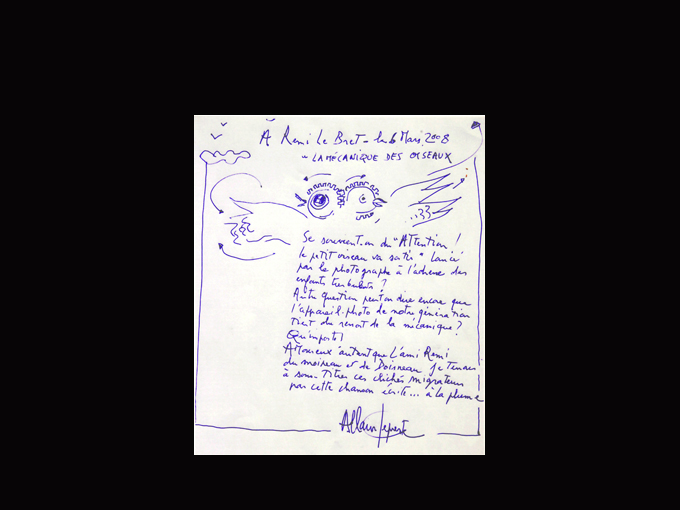 A Remi Le Bret - le 6 Mars 2008
- LA MÉCANIQUE DES OISEAUX
Se souvient-on du "Attention !
le petit oiseau va sortir" lancé
par le photographe à l'adresse des
enfants turbulents ?
Autre question peut on dire encore que
l'appareil-photo de notre génération
tient du ressort de la mécanique ?
Qu'importe !
Amoureux autant que l'ami Remi
du moineau et de Doisneau je tenais
à sous-titrer ces clichés migrateurs
par cette chanson écrite... à la plume
Allain Leprest